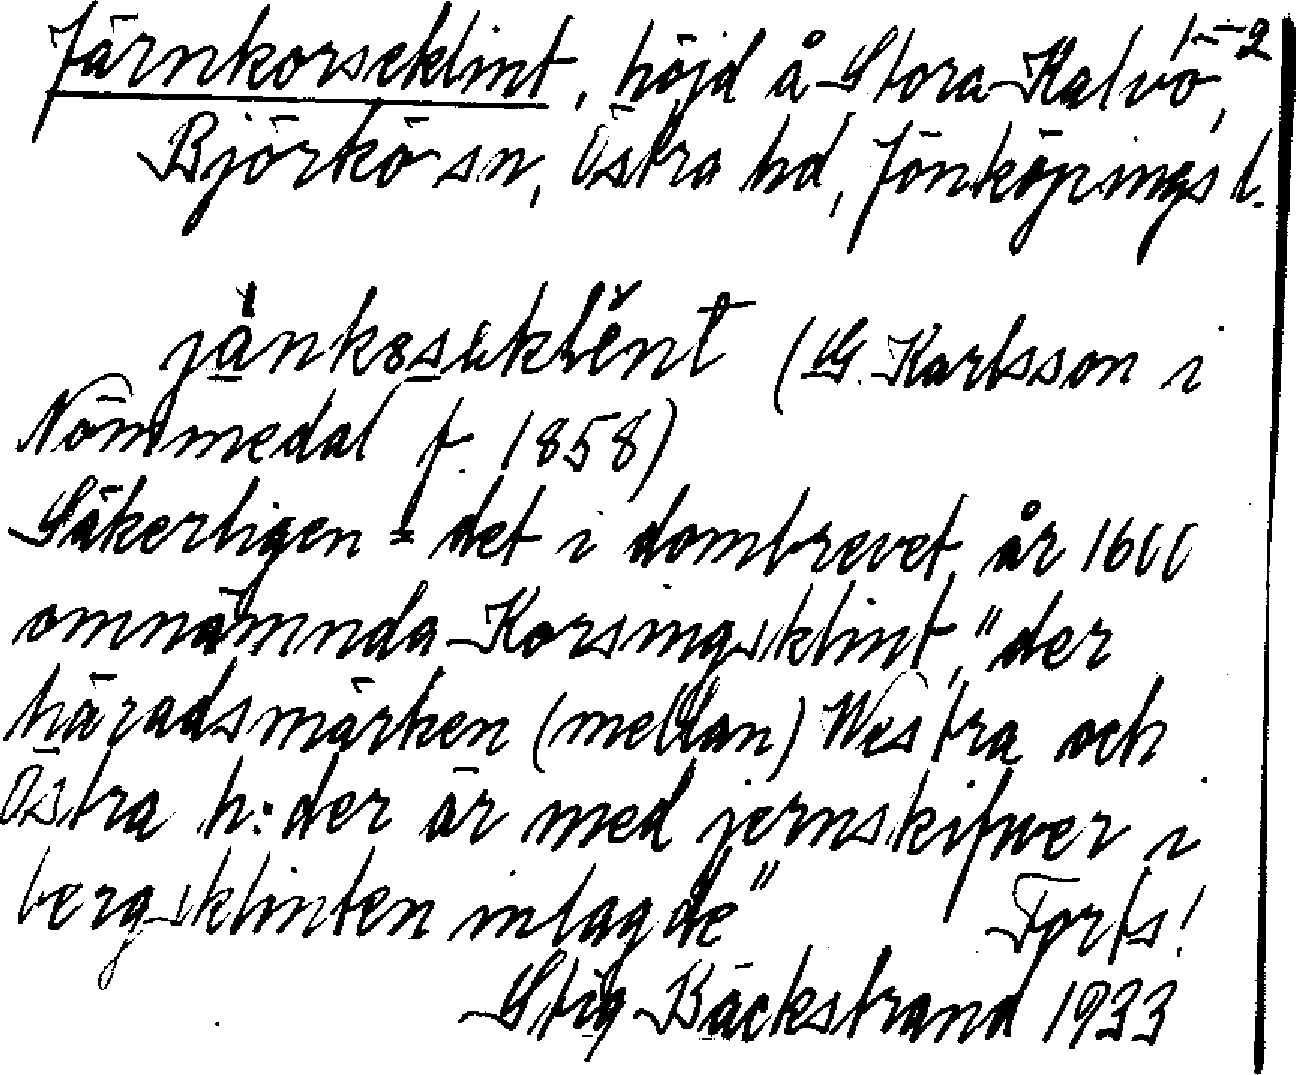 1–2
Järnkorseklint, höjd å Stora Kalvö,
Björkö sn, Östra hd, Jönköpings l.
(G. Karlsson i
Nömmedal f. 1858)
Säkerligen = det i dombrevet år 1600
omnämnda Korsingsklint, "der
häradsmärken (mellan) Westra och
Östra h:der är med jernskifwer i
bergsklinten inlagde" Forts!
Stig Bäckstrand 1933